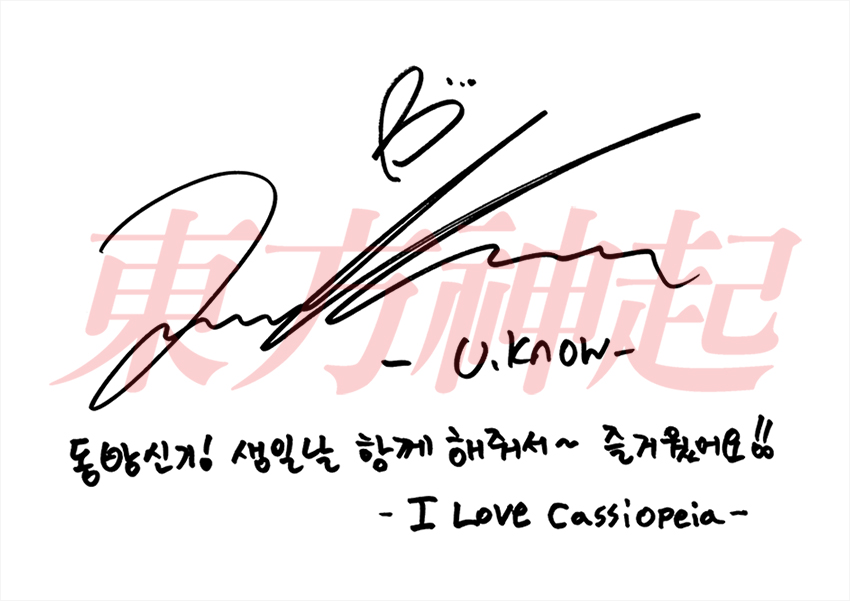 東方神起
- U.KNOW -
동방신기! 생일날 함께 해줘서~ 즐거웠어요!!
- I Love Cassiopeia -